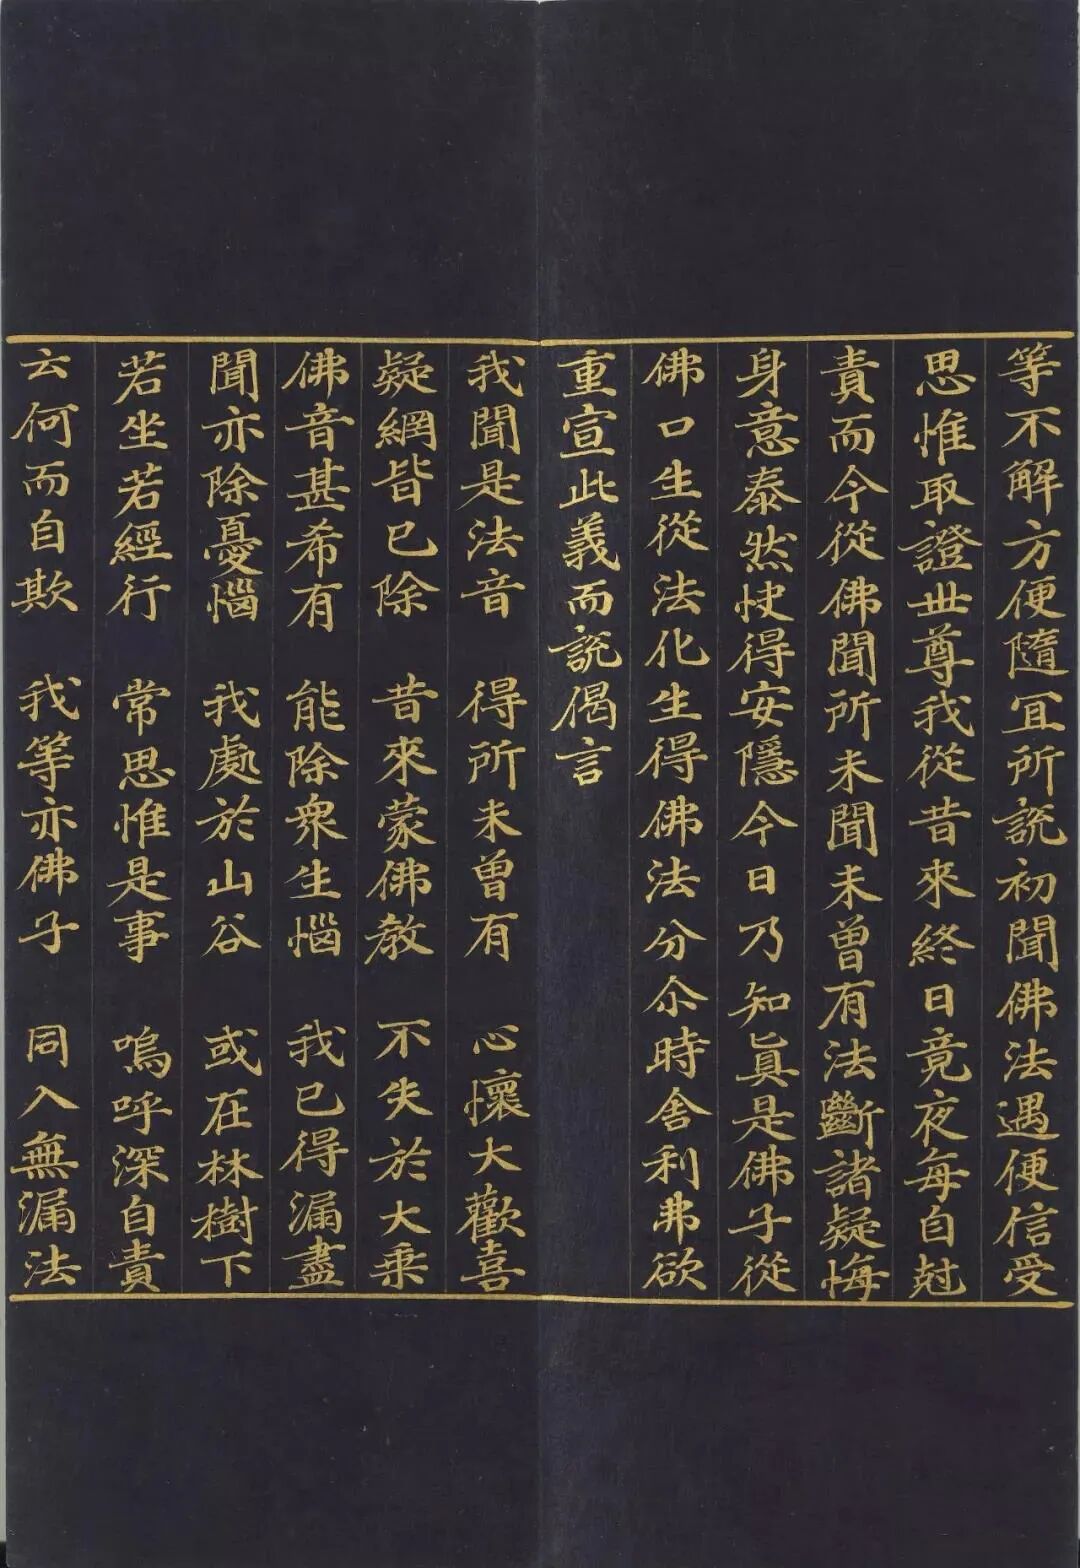 等不解方便隨冝所説初聞佛法遇便信受
思惟取證世尊我從昔来終日竟夜每自尅
責而今從佛聞所未聞未曾有法斷諸疑悔
身意泰然快得安隱今日乃知真是佛子從
佛口生從法化生得佛法分尒時舍利弗欲
重宣此義而説偈言
我聞是法音 得所未曾有 心懷大歡喜
疑網皆已除 昔来蒙佛教 不失於大乗
佛音甚希有 能除衆生惱 我已得漏盡
聞亦除憂惱 我處於山谷 或在林樹下
若坐若經行 常思惟是事 嗚呼深自責
云何而自欺 我等亦佛子 同入無漏法